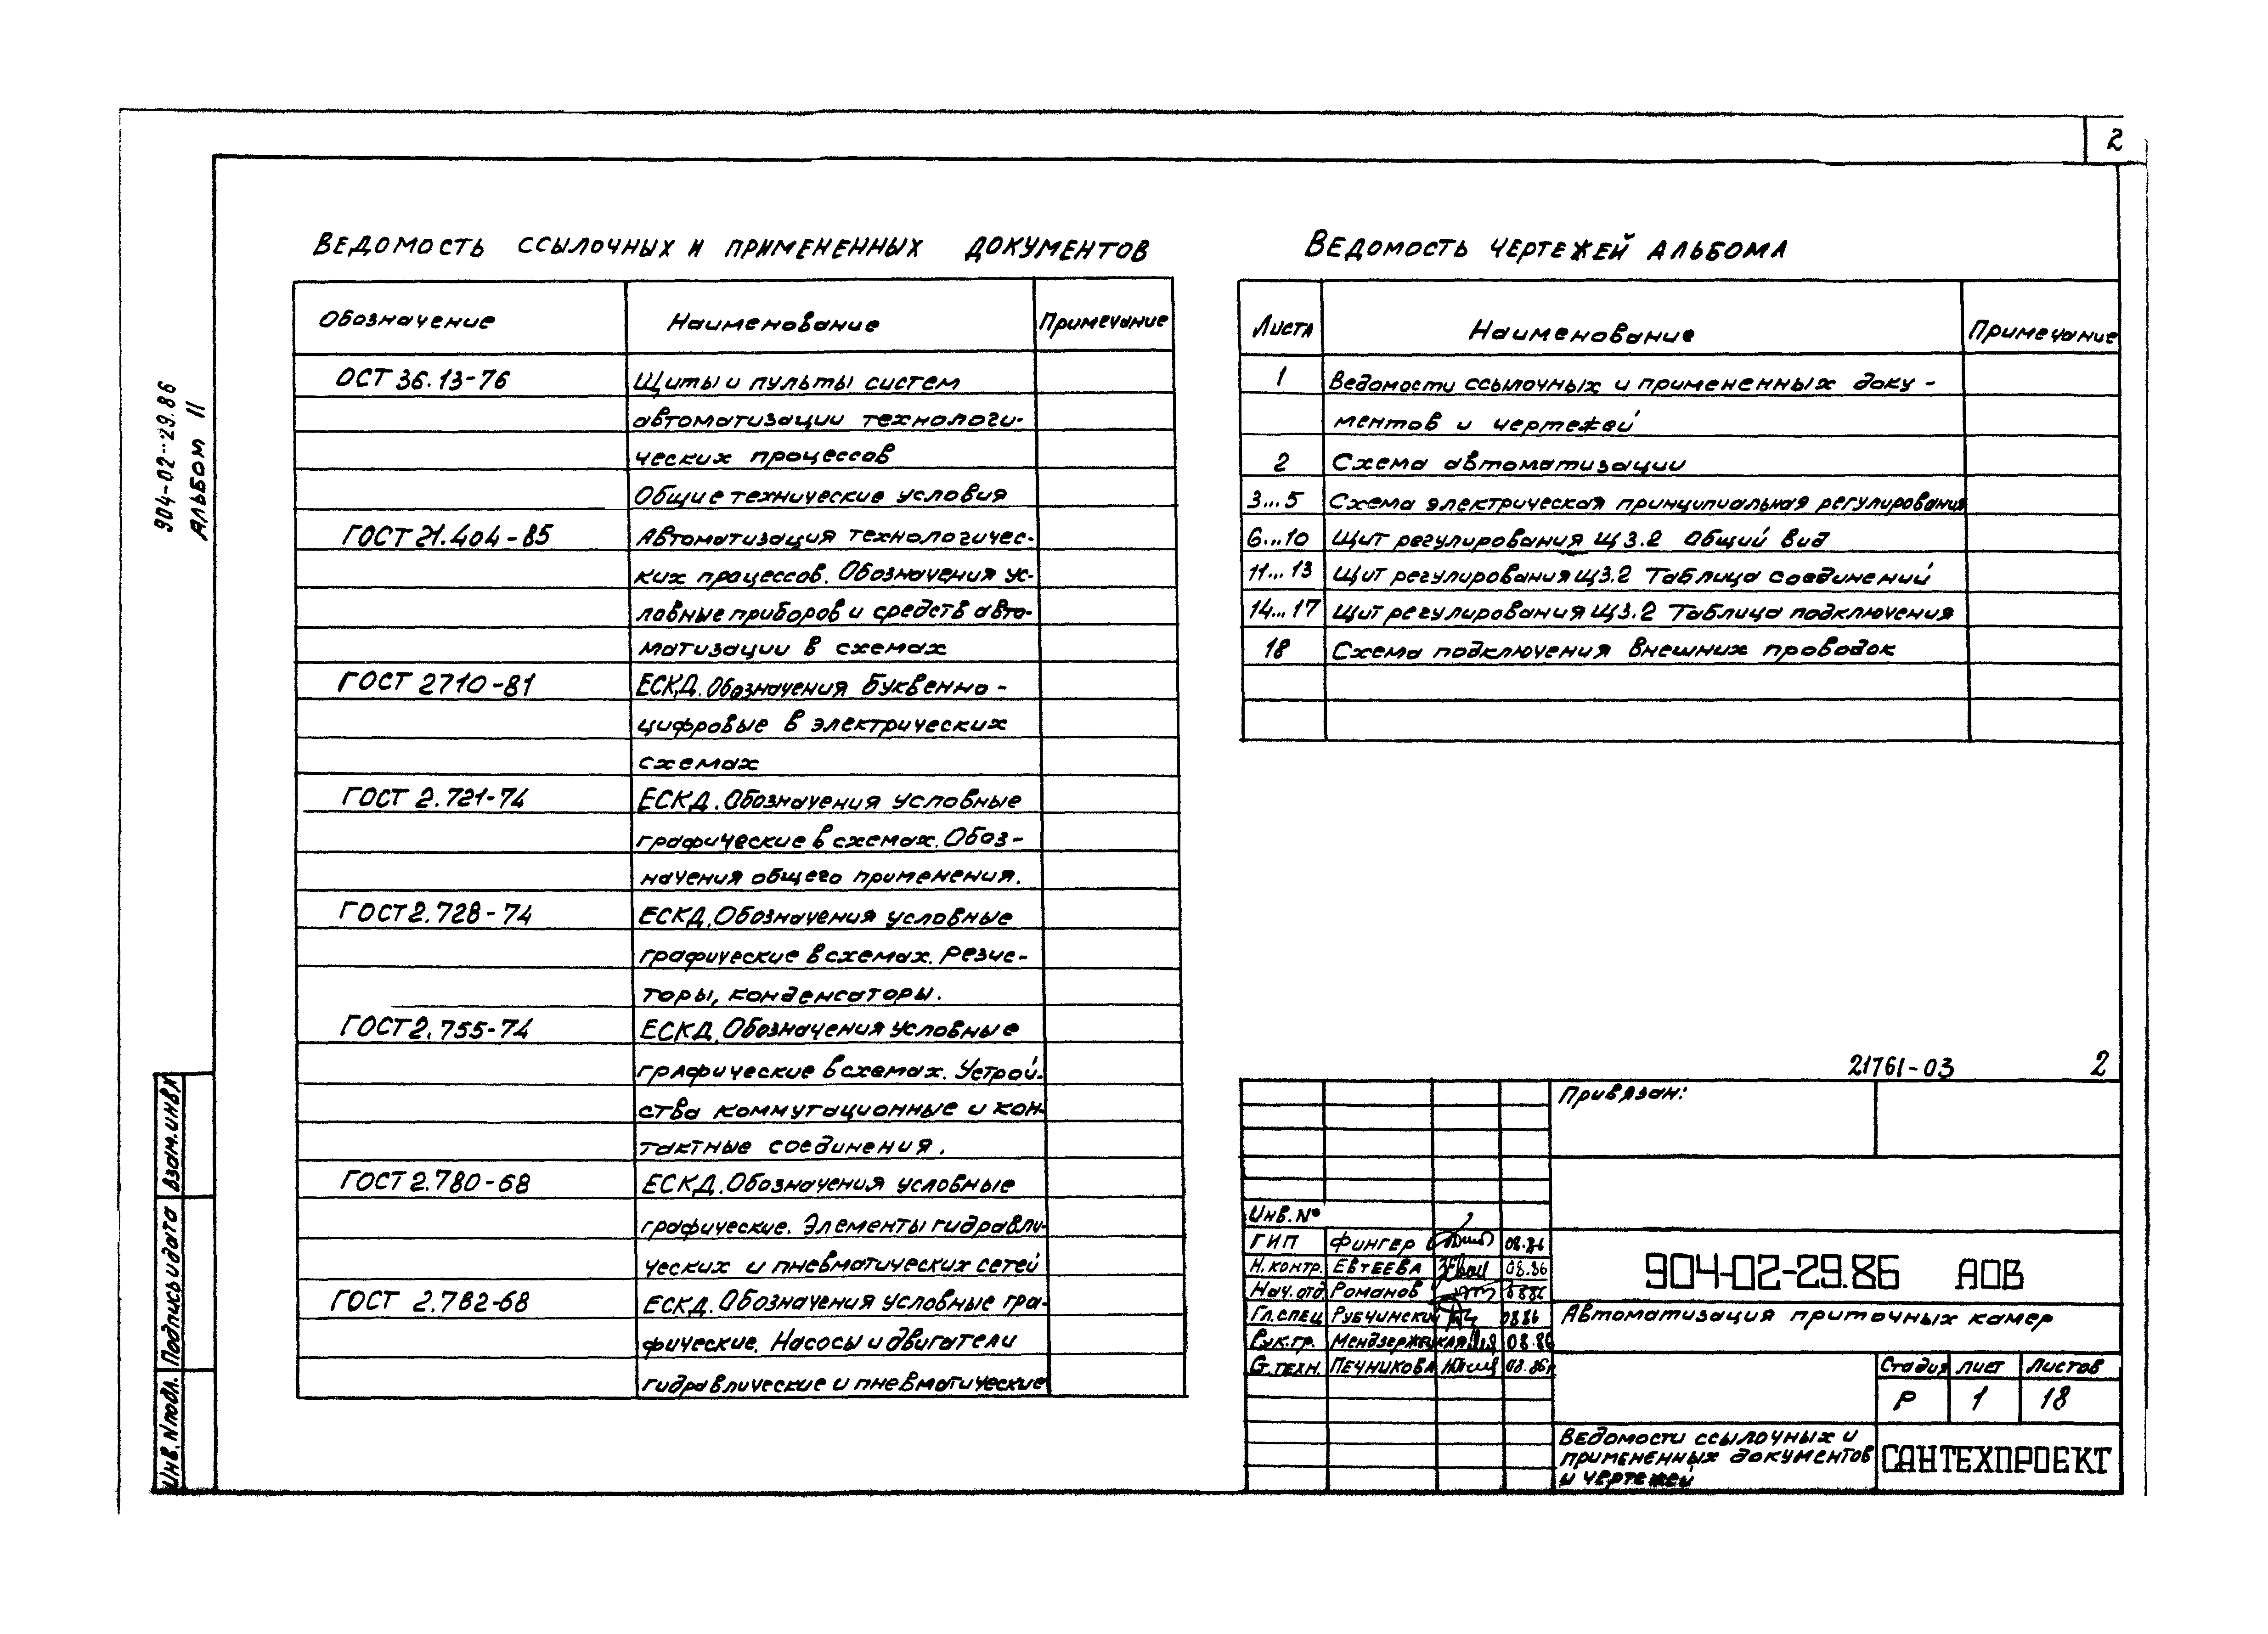 2
904-02-29.86
АЛЬБОМ II
ВЕДОМОСТЬ ССЫЛОЧНЫХ И ПРИМЕНЕННЫХ ДОКУМЕНТОВ
Обозначение Наименование Примечание
ОСТ 36.13-76 Щиты и пульты систем
автоматизации технологи-
ческих процессов
Общие технические условия
ГОСТ 21.404-85 Автоматизация технологичес-
ких процессов. Обозначения ус-
ловные приборов и средств авто-
матизации в схемах
ГОСТ 2710-81 ЕСКД. Обозначения буквенно-
цифровые в электрических
схемах
ГОСТ 2.721-74 ЕСКД. Обозначения условные
графические в схемах. Обоз-
начения общего применения.
ГОСТ 2.728-74 ЕСКД. Обозначения условные
графические в схемах. Резис-
торы, конденсаторы.
ГОСТ 2.755-74 ЕСКД. Обозначения условные
графические в схемах. Устрой-
ства коммутационные и кон-
тактные соединения.
ГОСТ 2.780-68 ЕСКД. Обозначения условные
графические. Элементы гидравли-
ческих и пневматических сетей
ГОСТ 2.782-68 ЕСКД. Обозначения условные гра-
фические. Насосы и двигатели
гидравлические и пневматические
ВЕДОМОСТЬ ЧЕРТЕЖЕЙ АЛЬБОМА
Листа Наименование Примечание
1 Ведомости ссылочных и примененных доку-
ментов и чертежей
2 Схема автоматизации
3...5 Схема электрическая принципиальная регулирования
6...10 Щит регулирования Щ3.2 Общий вид
11...13 Щит регулирования Щ3.2 Таблица соединений
14...17 Щит регулирования Щ3.2 Таблица подключения
18 Схема подключения внешних проводок
21761-03 2
Привязан:
Инв. №
ГИП ФИНГЕР 08.86
Н. КОНТР. ЕВТЕЕВА 08.86
Нач. отд РОМАНОВ 0886
Гл. СПЕЦ РУБЧИНСКИЙ 0886
Рук. гр. МЕНДЗЕРЖЕЦКАЯ 08.86
Ст. техн. ПЕЧНИКОВА 08.86
904-02-29.86 АОВ
Автоматизация приточных камер
Стадия Лист Листов
Р 1 18
Ведомости ссылочных и
примененных документов
и чертежей
САНТЕХПРОЕКТ
Взам. инв. №
Подпись и дата
Инв. № подл.